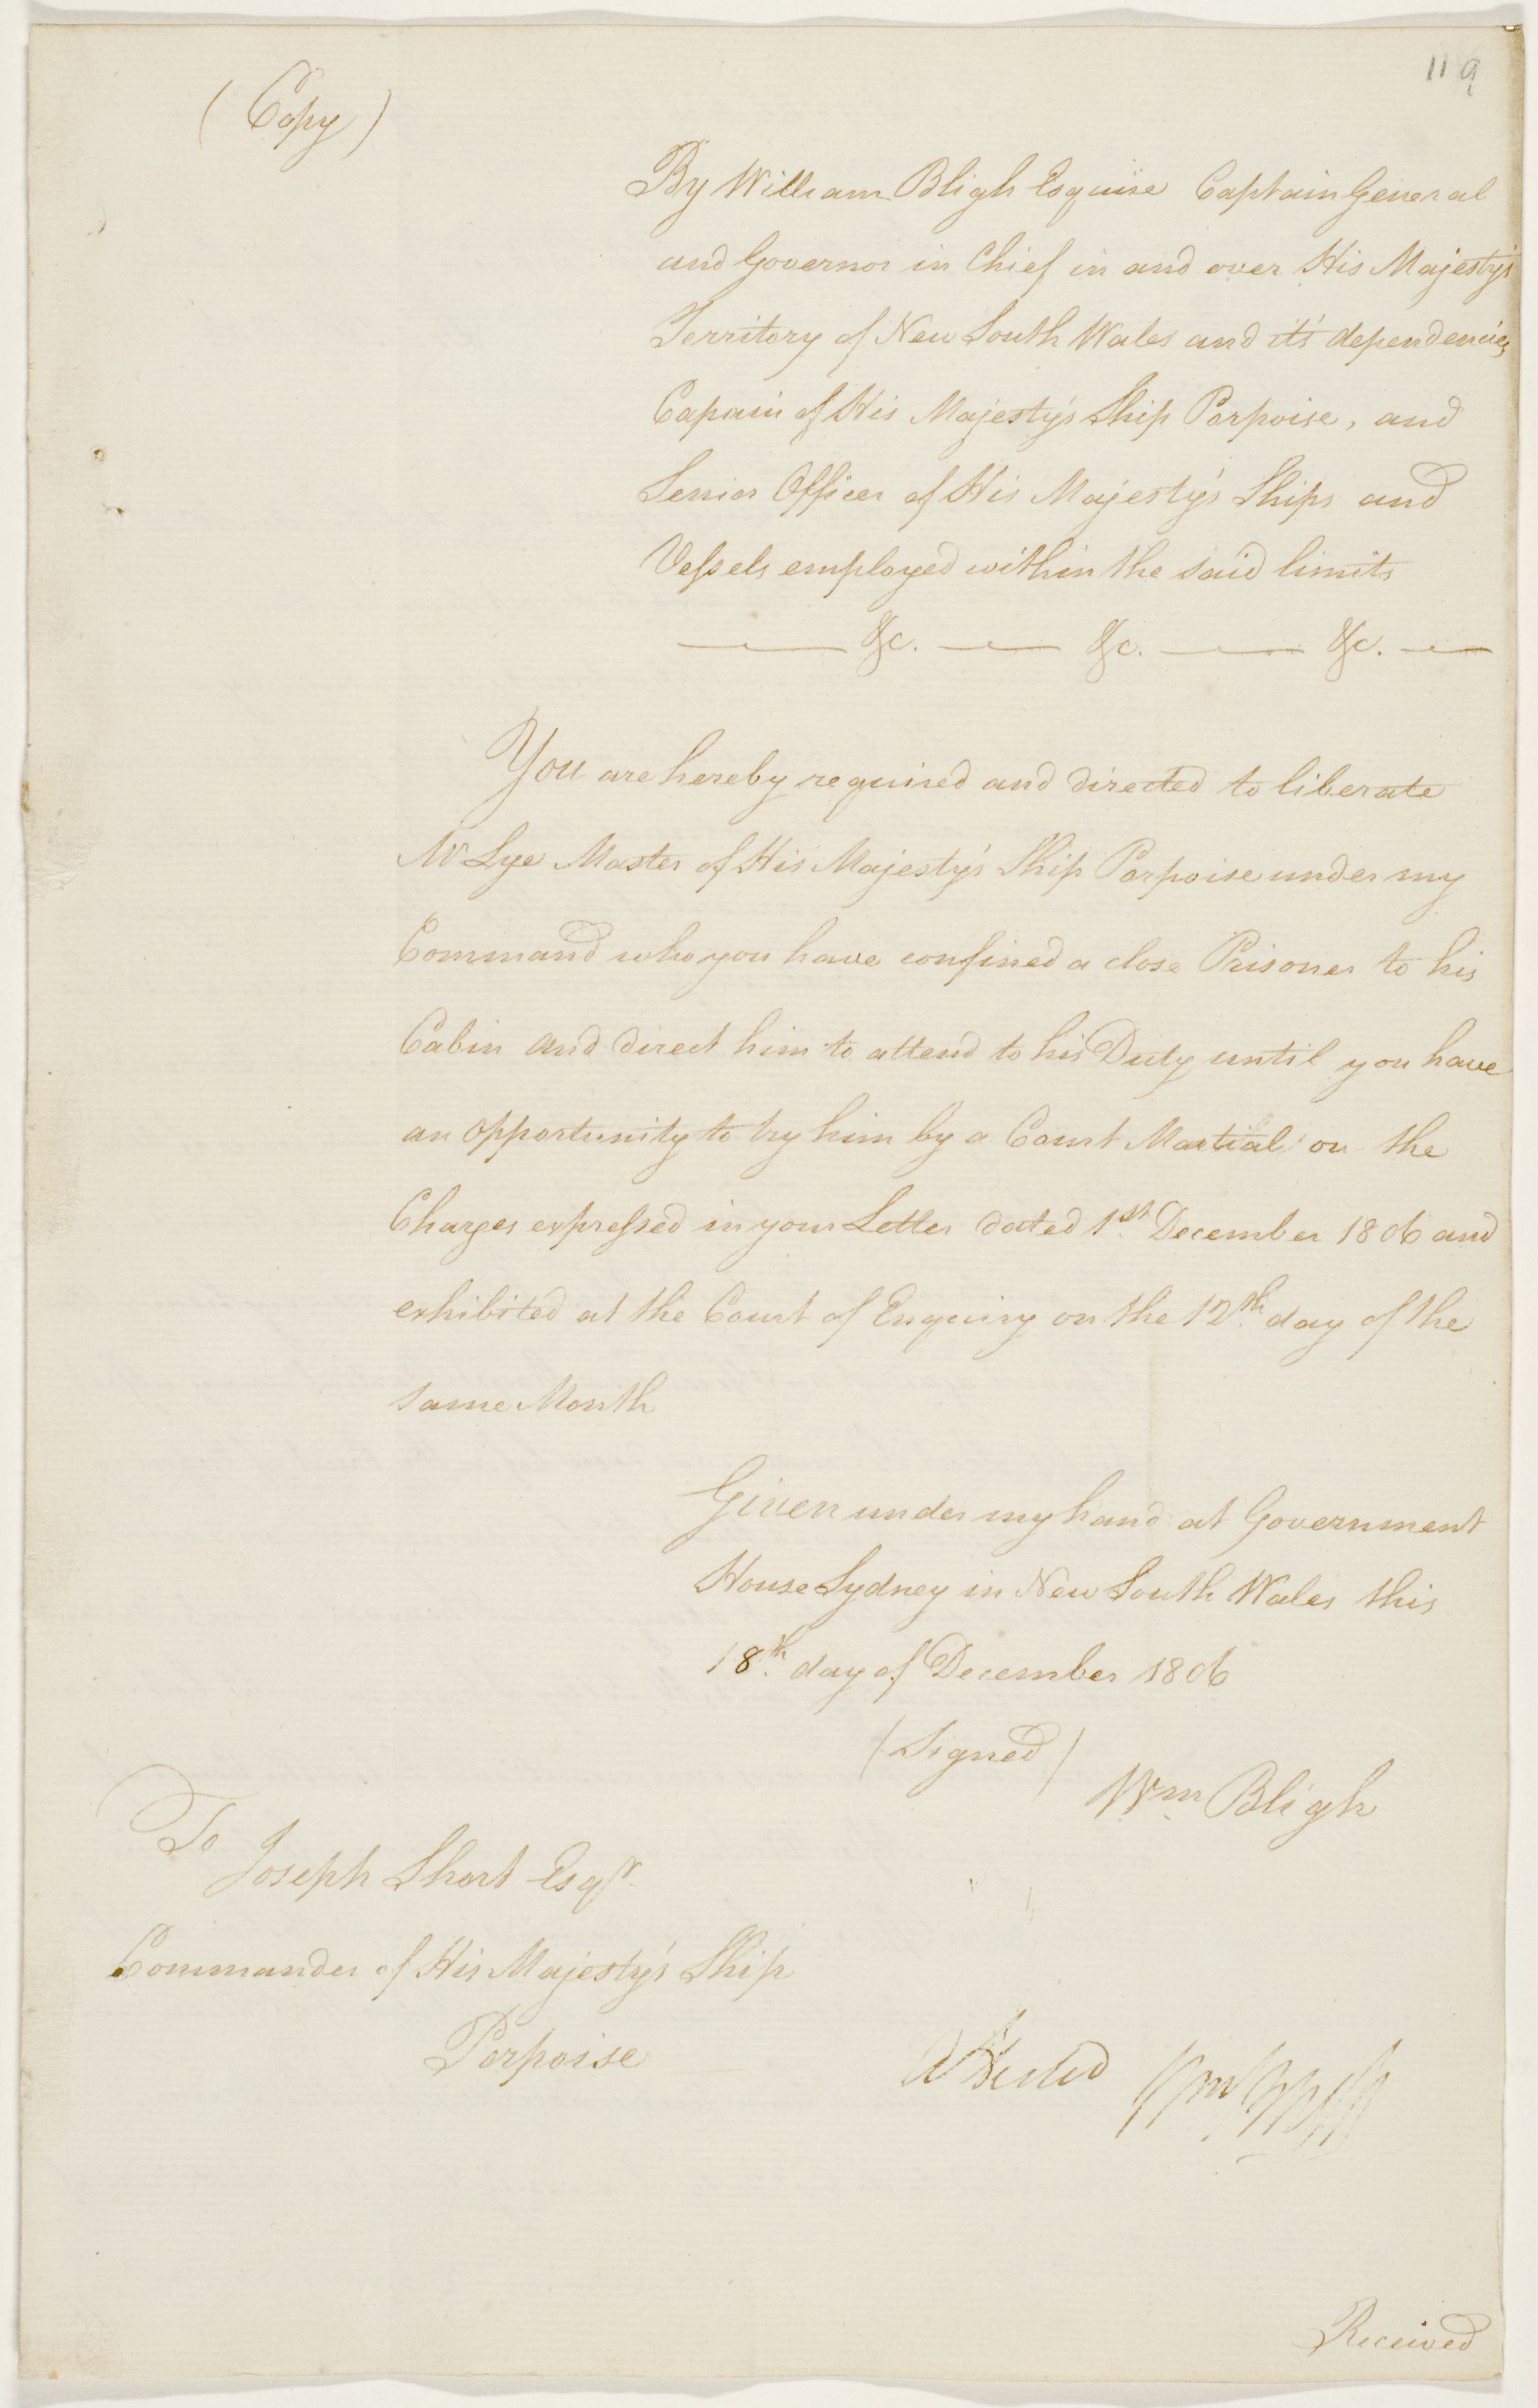 119
(Copy)
By William Bligh Esquire Captain General
and Governor in Chief in and over His Majesty's
Territory of New South Wales and it's dependencies
Capain of His Majesty's Ship Porpoise, and
Senior Officer of His Majesty's Ships and
Vessels employed within the said limits
— &c. — &c. — &c. —
You are hereby required and directed to liberate
Mr Lye Master of His Majesty's Ship Porpoise under my
Command who you have confined a close Prisoner to his
Cabin and direct him to attend to his Duty until you have
an opportunity to try him by a Court Martial on the
Charges expressed in your Letter dated 1st December 1806 and
exhibited at the Court of Enquiry on the 12th day of the
same Month
Given under my hand at Government
House Sydney in New South Wales this
18th day of December 1806
(Signed)
Wm Bligh
To
Joseph Short Esqr
Commander of His Majesty's Ship
Porpoise
Attested Wm Bligh
Received